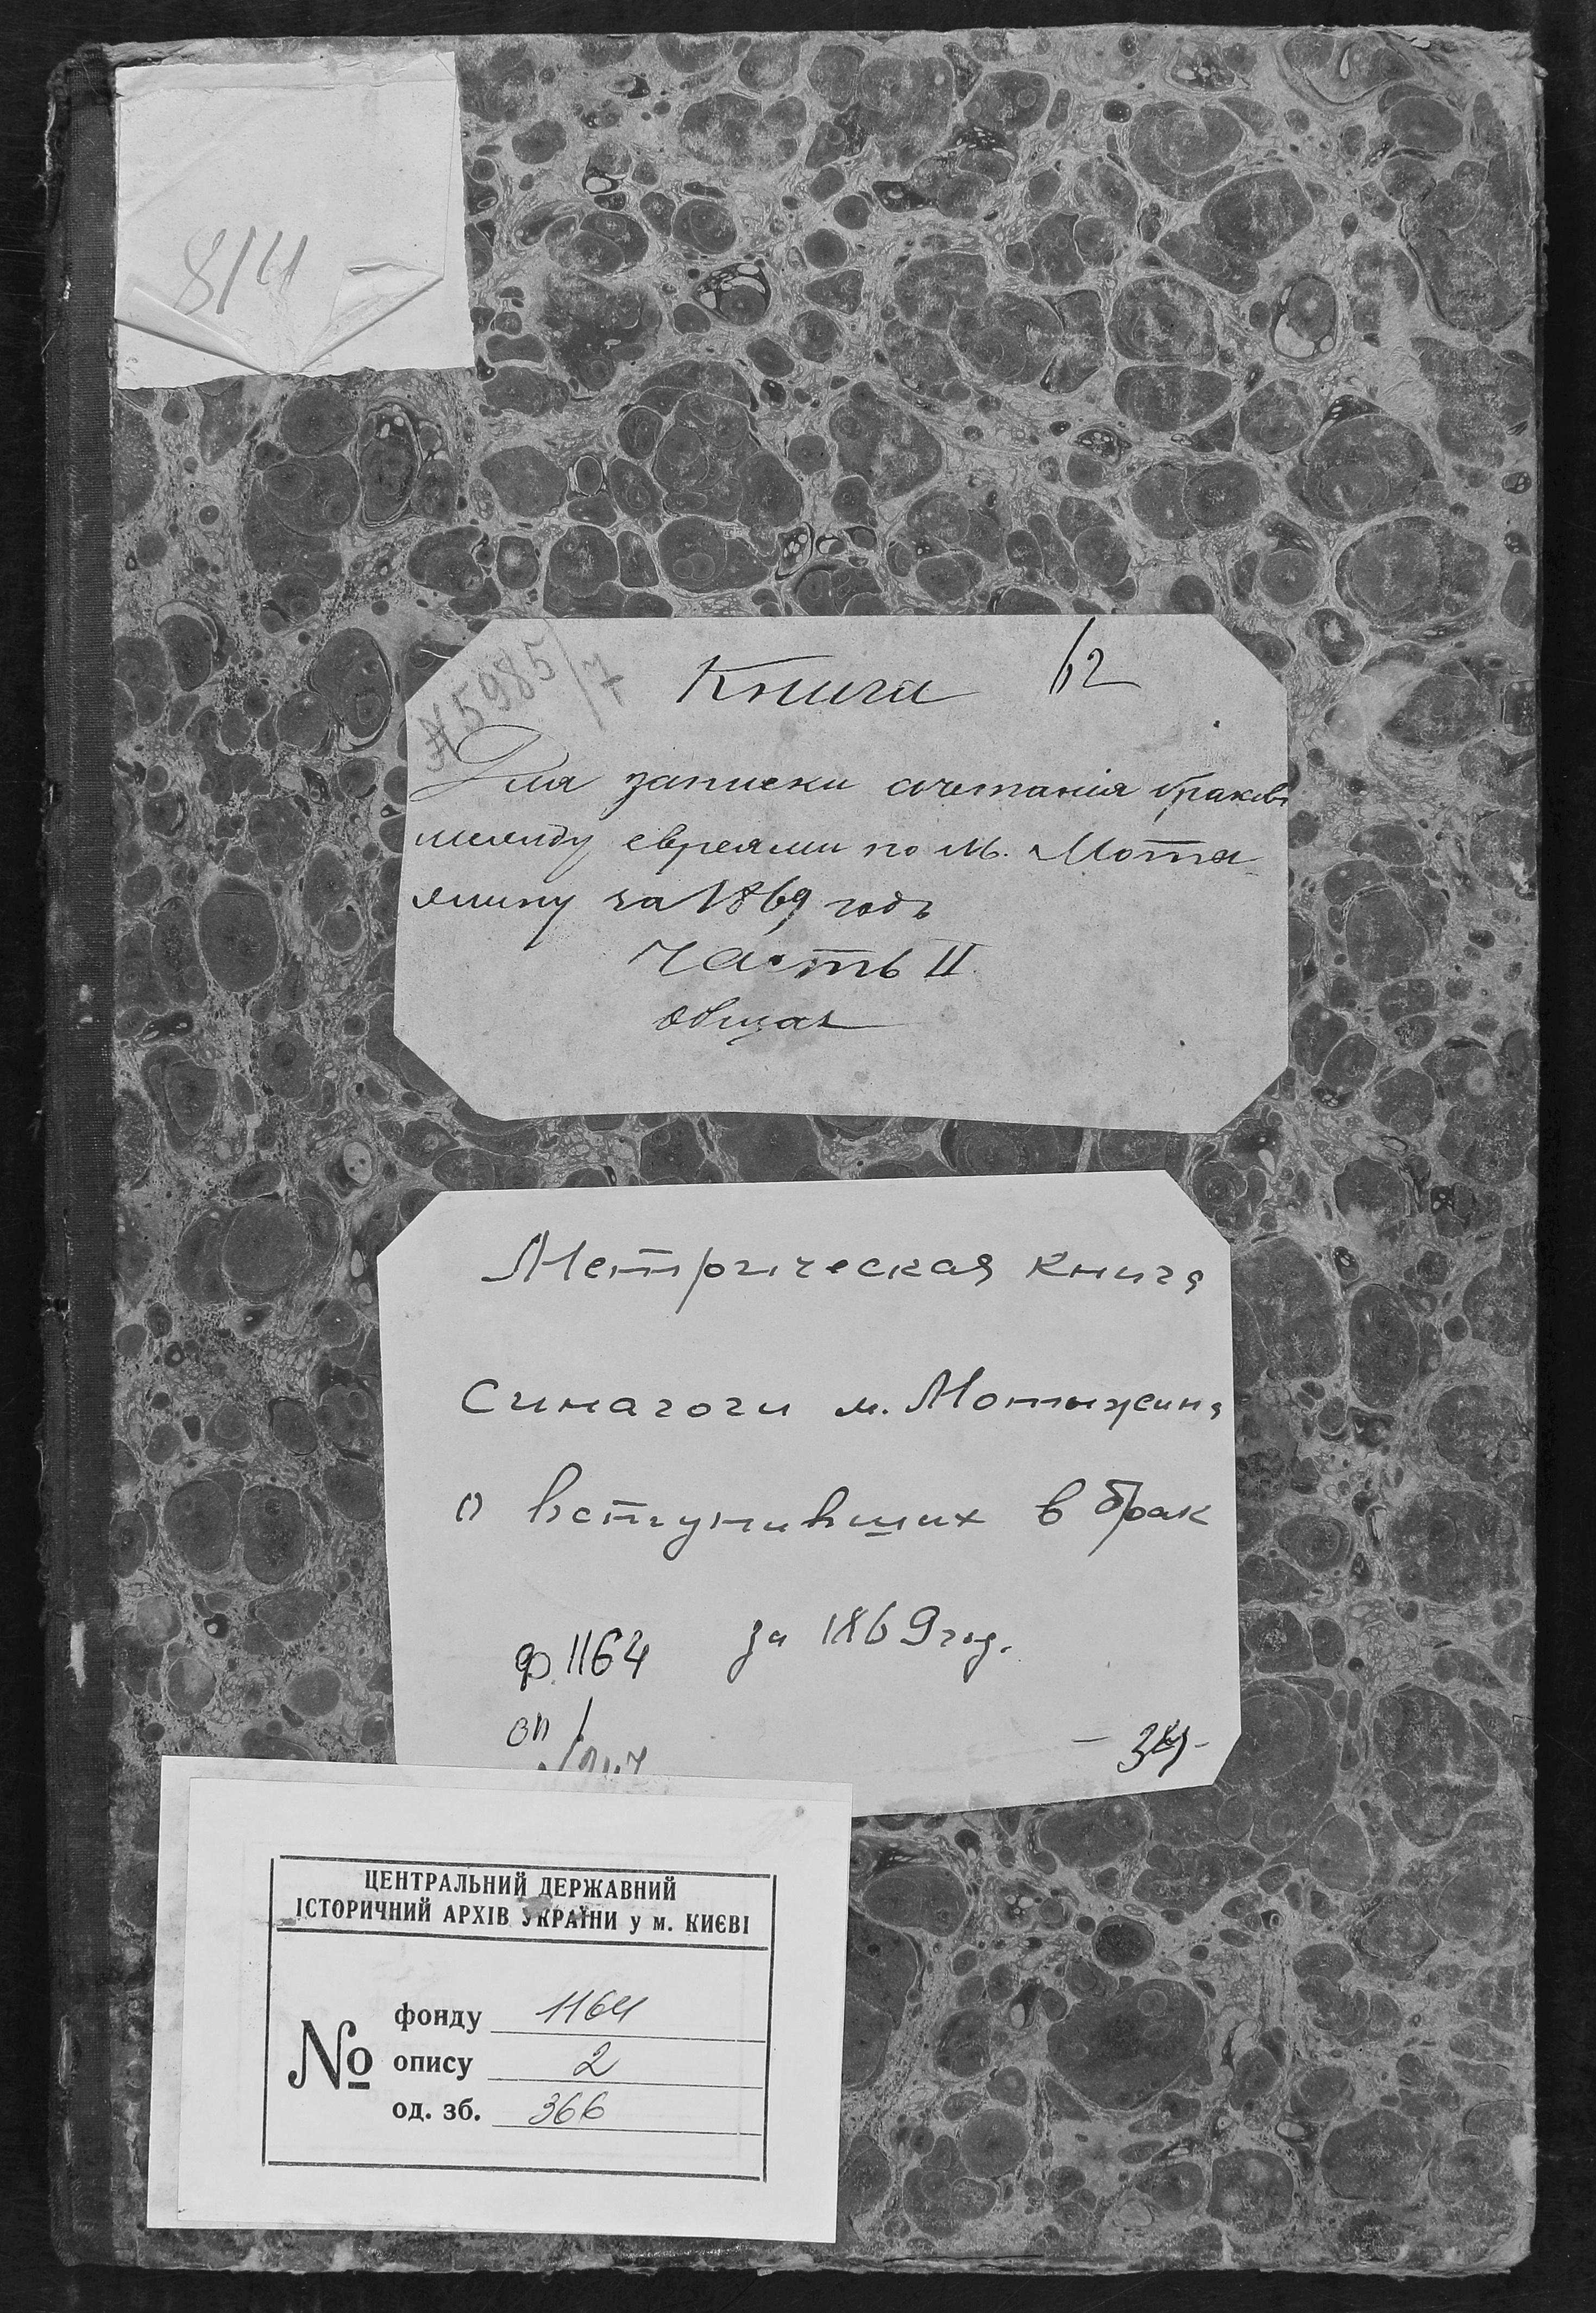 814
№5985/7
Книга 62
Для записки сочетанія браковъ
между евреями по м. Моты
жину за 1869 годъ
Часть II
общая
Метрическая книга
Синагоги м. Мотыжина
о вступивших в брак
за 1869 год.
ф. 1164
оп 1
ЦЕНТРАЛЬНИЙ ДЕРЖАВНИЙ
ІСТОРИЧНИЙ АРХІВ УКРАЇНИ у м. КИЄВІ
№
фонду 1164
опису 2
од. зб. 366